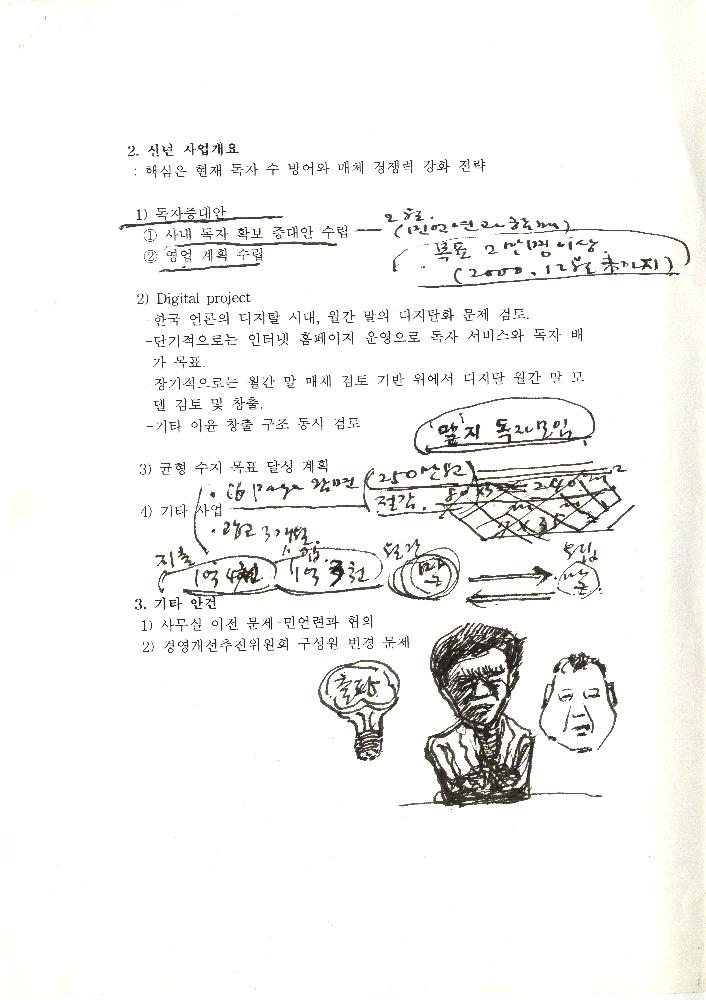 2. 신년 사업개요
: 핵심은 현재 독자 수 방어와 매체 경쟁력 강화 전략
1) 독자증대안
① 사내 독자 확보 증대안 수립
2월.
② 영업 계획 수립
목표 2만명 이상.
(2000. 12월 末까지)
2) Digital project
-한국 언론의 디지탈 시대, 월간 말의 디지탈화 문제 검토.
-단기적으로는 인터넷 홈페이지 운영으로 독자 서비스와 독자 배
가 목표.
-장기적으로는 월간 말 매체 검토 기반 위에서 디지탈 월간 말 모
델 검토 및 창출.
-기타 이윤 창출 구조 동시 검토
'말'지 독자모임
3) 균형 수지 목표 달성 계획
· 16 page 감면 (250만원
절감.
4) 기타 사업
· 광고 3개월
지출
1억 4천
1억 3천
월간
말
독립
말
3. 기타 안건
1) 사무실 이전 문제-민언련과 협의
2) 경영개선추진위원회 구성원 변경 문제
출판